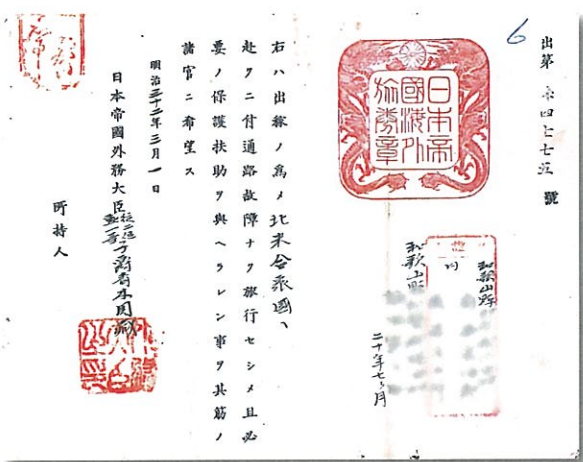 出第四七七五號
6
日本帝
國海外
旅券章
和歌山縣
和歌山縣
二十年七ヶ月
右ハ出稼ノ爲メ北米合衆國ヘ
赴クニ付通路故障ナク旅行セシメ且必
要ノ保護扶助ヲ與ヘラレン事ヲ其筋ノ
諸官ニ希望ス
明治三十二年三月一日
日本帝國外務大臣從二位勲一等子爵青木周藏
所持人